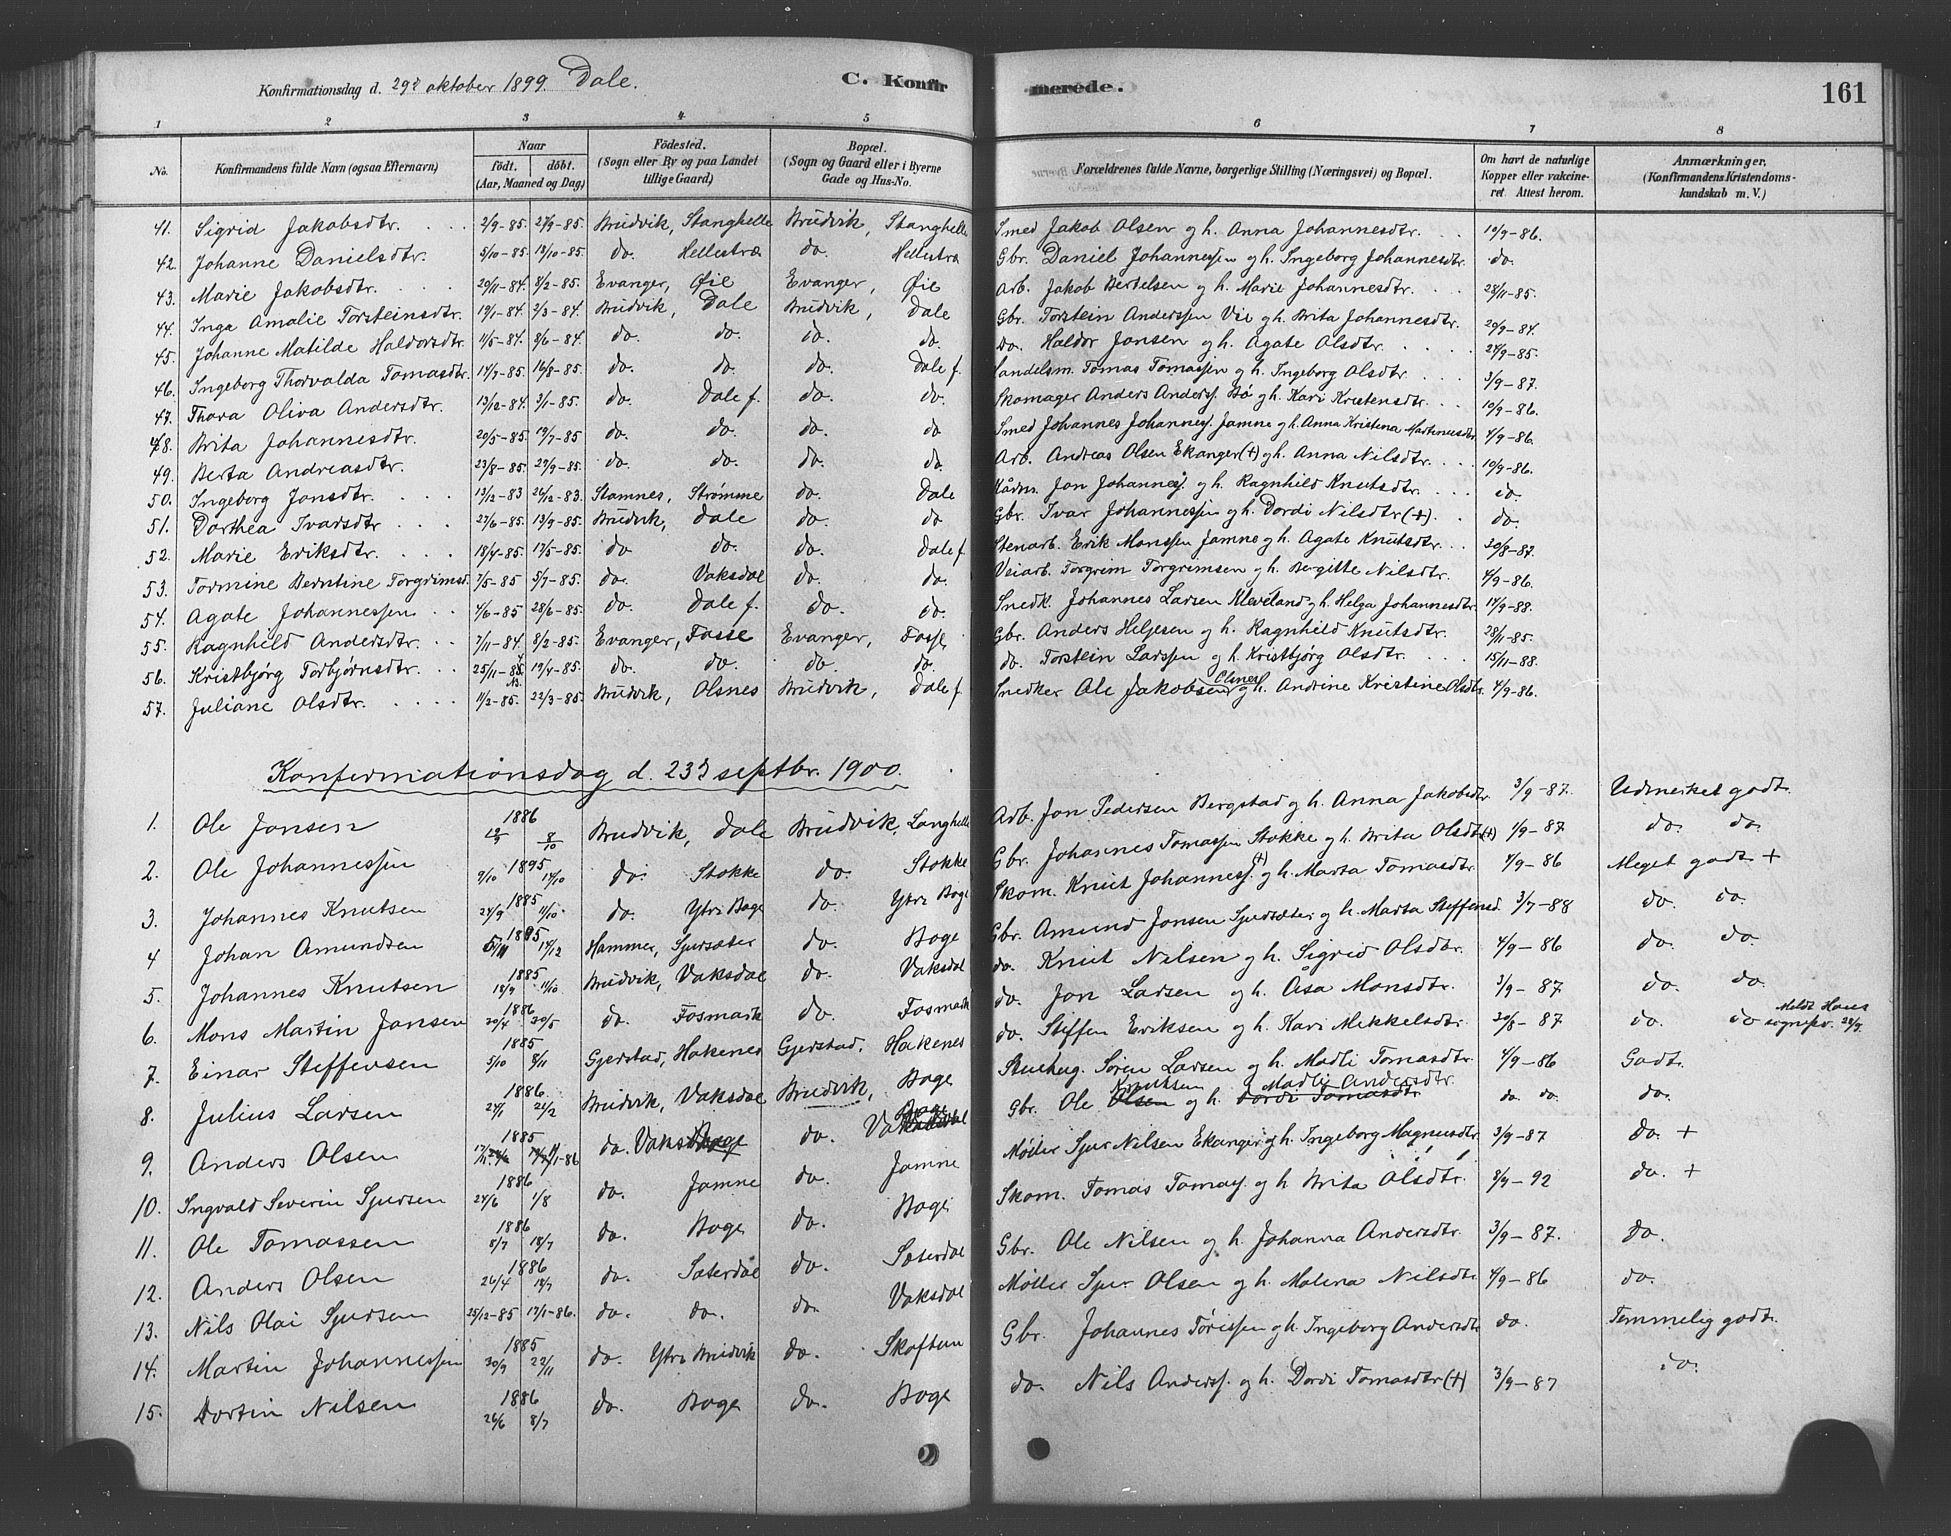 Konfirmationsdag d. 29d oktober 1899. Dale. C. Konfirmerede. 161
1 2 3 4 5 6 7 8
No. Konfirmandens fulde Navn (ogsaa Efternavn) Naar født. døbt. (Aar, Maaned og Dag) Fødested. (Sogn eller By og paa Landet tillige Gaard) Bopæl. (Sogn og Gaard eller i Byerne Gade og Hus-No. Forældrenes fulde Navne, borgerlige Stilling (Næringsvei) og Bopæl. Om havt de naturlige Kopper eller vaccineret. Attest herom. Anmærkninger. (Konfirmandens Kristendomskundskab m. V.)
41. Sigrid Jakobsdtr. 2/9-85. 27/9-85. Brudvik, Stanghelle Brudvik, Stanghelle Smed Jakob Olsen og h. Anna Johannesdtr. 10/9-86.
42. Johanne Danielsdtr. 5/10-85. 19/10-85. do. Hellestræ do. Hellestræ Gbr. Daniel Johannessen og h. Ingeborg Johannesdtr. do.
43. Marie Jakobsdtr. 20/11-84. 8/2-85. Evanger, Øie Evanger, Øie Arb. Jakob Bertelsen og h. Marie Johannesdtr. 28/11-85.
44. Inga Amalie Torsteinsdtr. 19/1-84. 2/3-84. Brudvik, Dale Brudvik, Dale Gbr. Torstein Anderssen Vie og h. Brita Johannesdtr. 29/9-84.
45. Johanne Matilde Haldorsdtr. 11/5-84. 8/6-84. do. do. do. do. do. Haldor Jansen og h. Agate Olsdtr. 27/9-85.
46. Ingeborg Thorvalda Tomasdtr. 14/7-85. 16/8-85. do. do. do. Dale f. Landelsm. Tomas Tomassen og h. Ingeborg Olsdtr. 3/9-87.
47. Thora Oliva Andersdtr. 13/12-84. 3/1-85. do. Dale f. do. do. Skomager Anders Anderss. Bø og h. Kari Kristensdtr. 10/9-86.
48. Brita Johannesdtr. 20/5-85. 19/7-85 do. do. do. do Smed Johannes Johanness. Jamne og h. Anna Kristina Martinusdtr. 4/9-86.
49. Berta Andreasdtr. 23/8-85. 29/9-85. do. do. do. do. Arb. Andreas Olsen Ekanger (+) og h. Anna Nilsdtr. 10/9-86.
50. Ingeborg Jonsdtr. 19/12-83 26/12-83. Stamnes, Strømme do. Dale Hådm. Jon Johanness. og h. Ragnhild Knutsdtr. do.
51. Dorthea Ivarsdtr 27/6-85. 13/9-85. Brudvik, Dale do. do Gbr. Ivar Johannessen og h. Dordi Nilsdtr (+). do.
52. Marie Eriksdtr. 18/4-85. 17/5-85. do do. do. Dale f Stenarb. Erik Monssen Jamne og h. Agate Knutsdtr. 30/8-87.
53. Tormine Berntine Torgrimsd. 7/5-85 5/7-85. do. Vaksdal do. do. Veiarb. Torgrim Torgrimsen og h. Bergitte Nilsdtr. 4/9-86.
54. Agate Johannessen 4/6-85 28/6-85. do. Dale f. do. do. Snedk. Johannes Larsen Kleveland og h. Helga Johannesdtr. 14/9-88.
55. Ragnhild Andersdtr. 7/11-84. 8/2-85. Evanger, Fosse Evanger, Fosse Gbr. Anders Heljesen og h. Ragnhild Knutsdtr. 28/11-85.
56. Kristbjørg Torbjørnsdtr. 25/11-84. 19/4-85. do. do. do. do. do. Torstein Larssen og h. Kristbjørg Olsdtr. 15/11-88.
57. Juliane Olsdtr. 11/2-85. 22/3-85. Brudvik, Olsnes Brudvik, Dale f Snedker Ole Jakobsen Olsnes og h. Andrine Kristine Olsdtr. 4/9-86.
Konfirmationsdag d. 23d septbr. 1900.
1. Ole Jonsen 1886 8/10 Brudvik, Dale Brudvik, Langhelle Arb. Jon Pedersen Bergstad og h. Anna Jakobsdtr 3/9-87. Udmerket godt.
2. Ole Johannessen 1895 9/10 17/10 do. Stokke do. Stokke Gbr. Johannes Tomassen Stokke og h. Brita Olsdtr (+) 1/9-87 do. do.
3. Johannes Knutsen 1885 24/9 11/10. do. Ytri Boge do. Ytri Boge Skom. Knut Johanness. (+) og h. Marta Tomasdtr. 4/9-86 Meget godt +
4 Johan Amundsen 1885 14/12 Hammer, Sjursæter do. Boge Gbr. Amund Jonsen Sjursæter og h. Marta Steffensd. 3/7-88 do. do.
5. Johannes Knutsen 1885 18/9 11/10 Brudvik, Vaksdal do. Vaksdal do. Knut Nilsen og h. Sigrid Olsdtr. 4/9-86 do. do.
6. Mons Martin Jonsen 1886 20/4 30/5 do. Fosmark do. Fosmark do. Jon Larsen og h. Åsa Monsdtr. 3/9-87 do. do
7. Einar Steffensen 1885 5/10 8/11 Gjerstad, Hakenes Gjerstad, Hakenes do. Steffen Eriksen og h. Kari Mikkelsdtr. 20/8-87 do. do Meldt Haus sognepr. 28/9.
8. Julius Larsen 1886 24/1 21/2 Brudvik, Vaksdal Brudvik, Boge Stenhug. Søren Larsen og h. Madli Tomasdtr. 4/9-86 Godt.
9. Anders Olsen 1885 1/1-86 do. Vaksdal Boge do. Vaksdal Boge Gbr. Ole Olsen Knutsen og h. Dordi Tomasdtr Madli Andersdtr. do. do. do.
10. Ingvald Severin Sjursen 1886 24/6 1/8 do. Jamne do. Jamne Møller Sjur Nilsen Ekanger og h. Ingeborg Magnusdtr. 3/9-87 do. +
11. Ole Tomassen 1886 8/7 18/7 do. Boge do. Boge Skom. Tomas Tomass. og h Brita Olsdtr. 8/9-92 do. +
12. Anders Olsen 1886 26/4 18/7 do. Sæterdal do. Sæterdal Gbr. Ole Nilsen og h. Johanna Andersdtr. 3/9-87. do.
13. Nils Olai Sjursen 25/12-85 17/1-86. do. do. do. Vaksdal Møller Sjur Olsen og h. Malena Nilsdtr. 4/9-86 do.
14. Martin Johannessen 1885 30/9 22/11 do. Ytri Brudvik do. Skoftun Gbr. Johannes Tørissen og h. Ingeborg Andersdtr do. Temmelig godt.
15. Dortin Nilsen 1886 26/6 8/7 do. Boge do. Boge do. Nils Anderss. og h. Dordi Tomasdtr (+) 3/9-87 do.